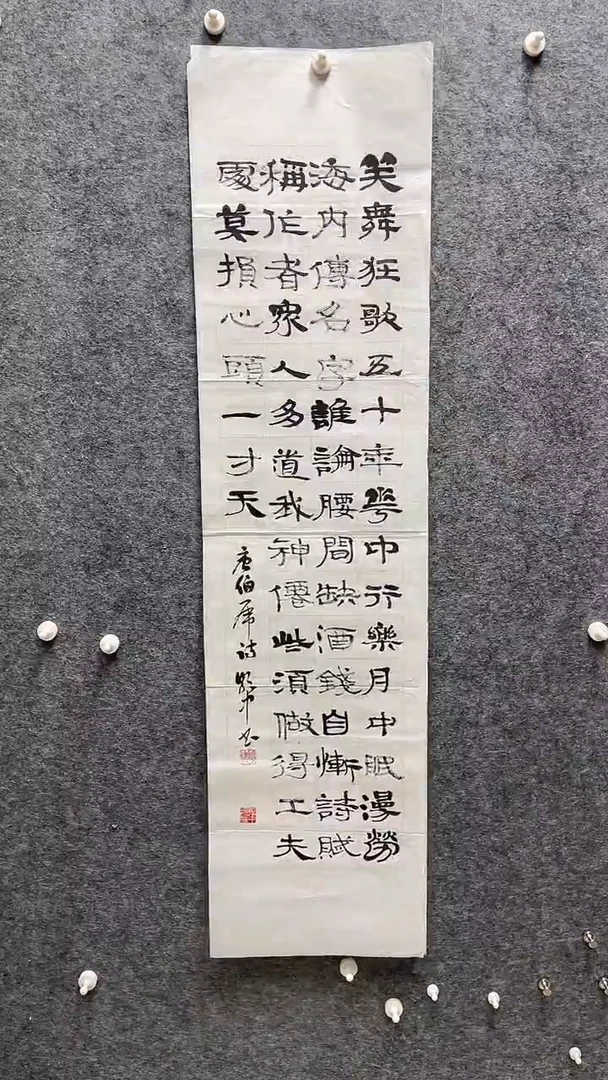 笑舞狂歌五十年華中行樂月中眠漫勞
海内傳名字誰論腰間缺酒錢自慚詩賦
稱作者衆人多道我神僊些須做得工夫
處莫損心頭一寸天
唐伯虎詩 中書